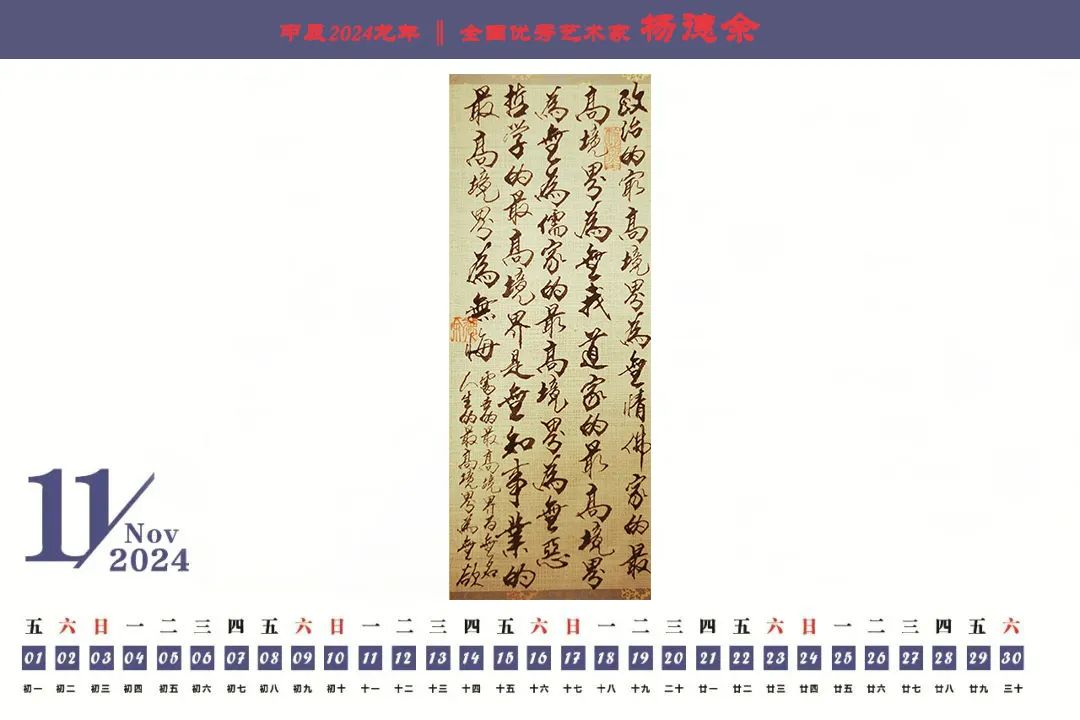 甲辰2024龙年 ‖ 全国优秀艺术家 杨德余
政治的最高境界為無情佛家的最
高境界為無我道家的最高境界
為無為儒家的最高境界為無惡
哲学的最高境界是無知事業的
最高境界為無悔
的最高境界为無名
人生的最高境界為無欲
11/Nov
2024
五 六 日 一 二 三 四 五 六 日 一 二 三 四 五 六 日 一 二 三 四 五 六 日 一 二 三 四 五 六
01 02 03 04 05 06 07 08 09 10 11 12 13 14 15 16 17 18 19 20 21 22 23 24 25 26 27 28 29 30
初一 初二 初三 初四 初五 初六 初七 初八 初九 初十 十一 十二 十三 十四 十五 十六 十七 十八 十九 二十 廿一 廿二 廿三 廿四 廿五 廿六 廿七 廿八 廿九 三十